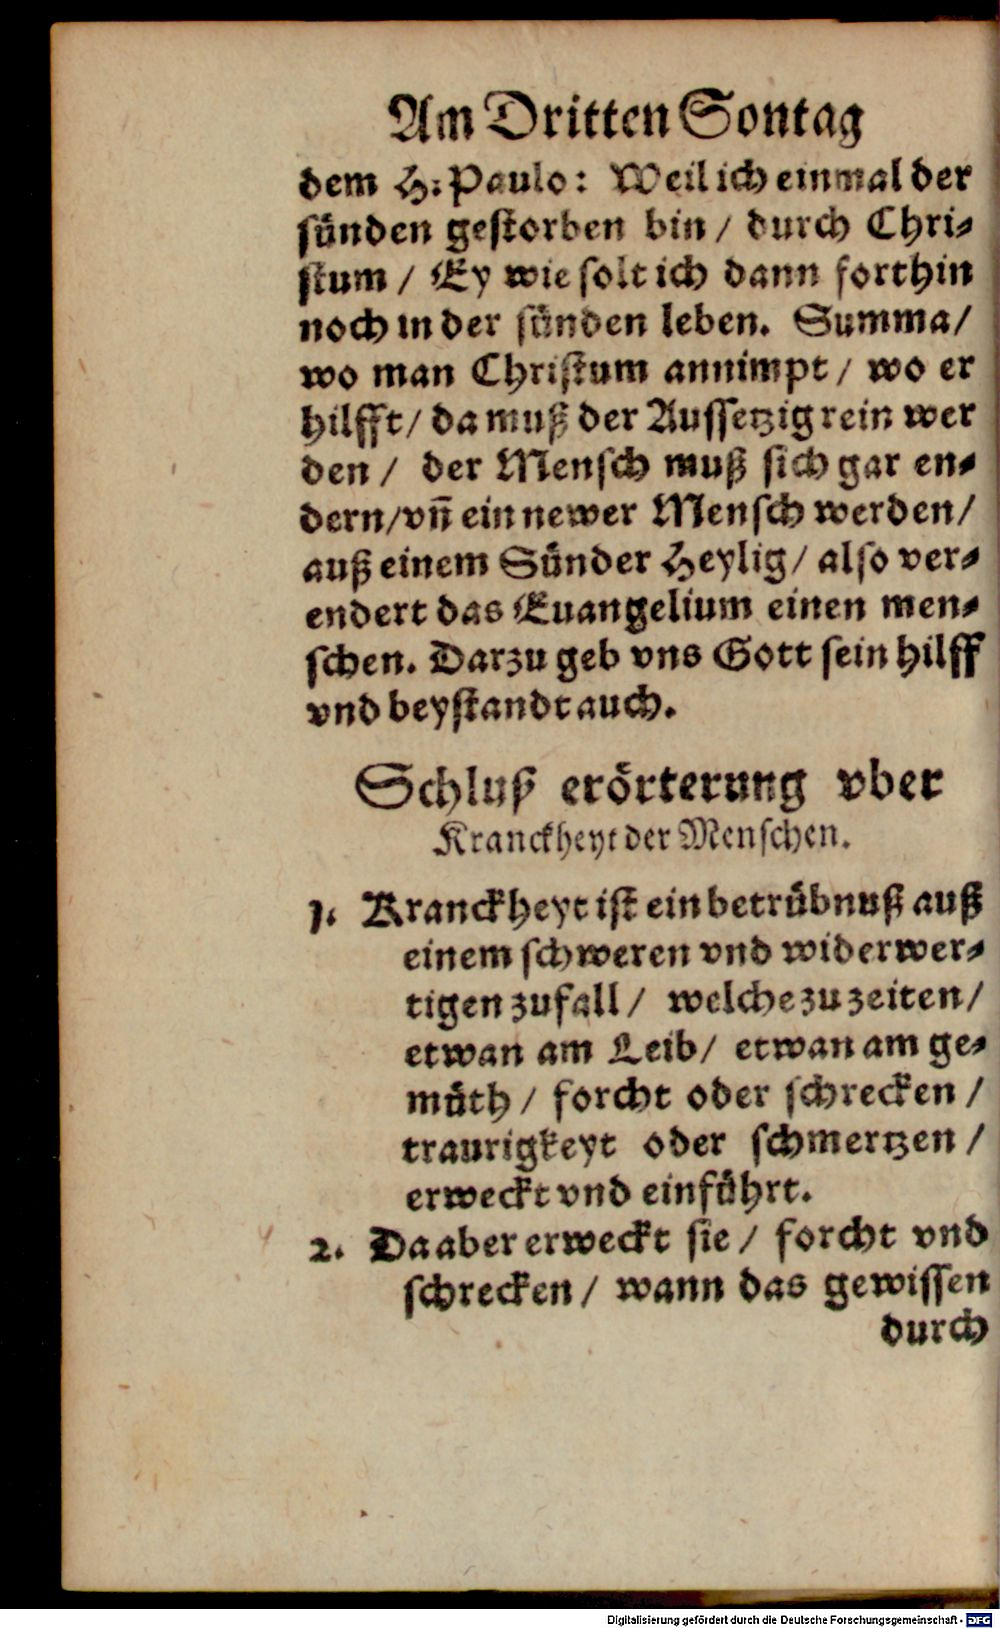 Am Dritten Sontag
dem H. Paulo: Weil ich einmal der
sünden gestorben bin / durch Chri-
stum / Ey wie solt ich dann forthin
noch in der sünden leben. Summa/
wo man Christum annimpt / wo er
hilfft/ da muß der Aussetzig rein wer
den / der Mensch muß sich gar en-
dern/vñ ein newer Mensch werden/
auß einem Sünder Heylig/ also ver-
endert das Euangelium einen men-
schen. Darzu geb vns Gott sein hilff
vnd beystandt auch.
Schluß erörterung vber
Kranckheyt der Menschen.
1. Kranckheyt ist ein betrübnuß auß
einem schweren vnd widerwer-
tigen zufall / welche zu zeiten/
etwan am Leib/ etwan am ge-
müth / forcht oder schrecken /
traurigkeyt oder schmertzen /
erweckt vnd einführt.
2. Da aber erweckt sie / forcht vnd
schrecken / wann das gewissen
durch
Digitalisierung gefördert durch die Deutsche Forschungsgemeinschaft - DFG